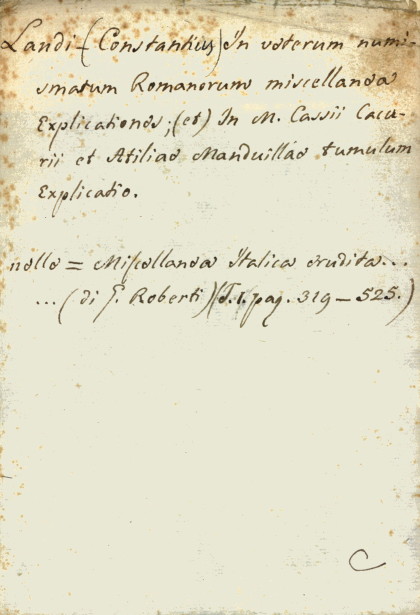 Landi (Constantius) In veterum numi-
smatum Romanorum miscellanea
Explicationes; (et) In M. Cassii Cacu-
rii et Atiliae Manduillae tumulum
Explicatio.
nelle = Miscellanea Italica erudita...
... (di G. Roberti) (T. I. pag. 319 – 525.)
C